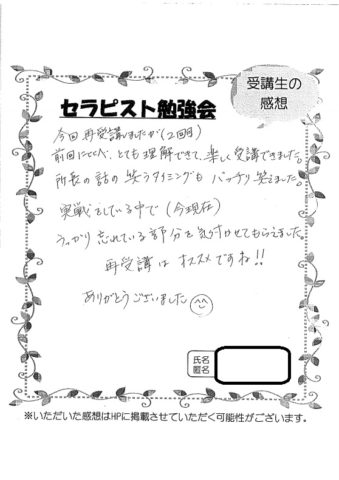 受講生の
感想
セラピスト勉強会
今回再受講しましたが(2回目)
前回にくらべ、とても理解できて、楽しく受講できました。
所長の話の笑うタイミングもバッチリ笑えました。
実戦をしている中で(今現在)
うっかり忘れている部分を気付かせてもらえました。
再受講はオススメですね!!
ありがとうございました
氏名
匿名
※いただいた感想はHPに掲載させていただく可能性がございます。